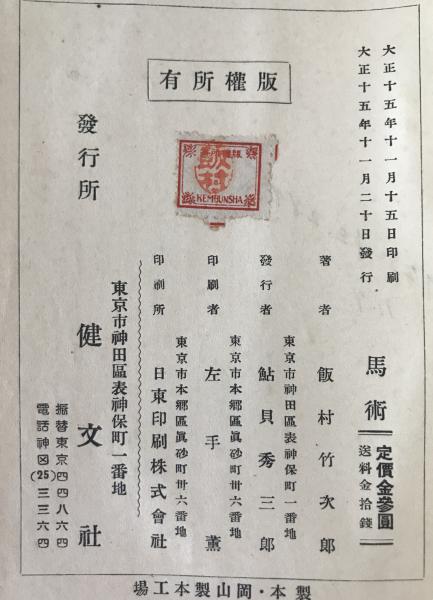 版權所有
大正十五年十一月十五日印刷
大正十五年十一月二十日發行
馬術
定價金參圓
送料金拾錢
著者 飯村竹次郎
東京市神田區表神保町一番地
發行者 鮎貝秀三郎
東京市本郷區眞砂町卅六番地
印刷者 左手薫
東京市本郷區眞砂町卅六番地
印刷所 日東印刷株式會社
發行所
東京市神田區表神保町一番地
健文社
振替東京四四八六四
電話神田(25)三三六四
飯村
KEMBUNSHA
製本・岡山製本工場